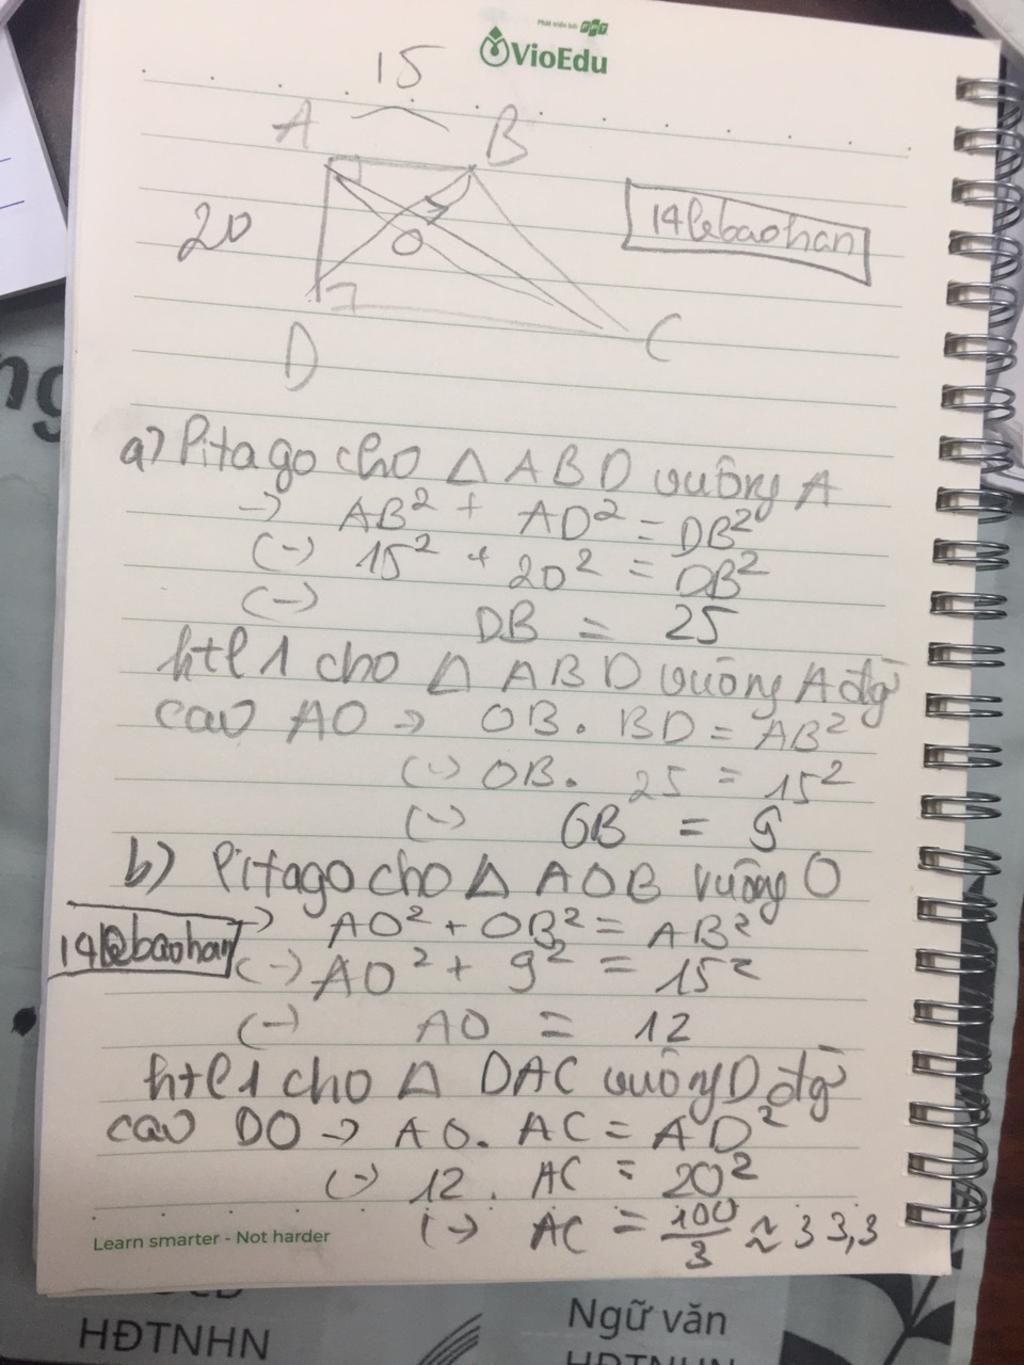 Phát triển bởi FPT
VioEdu
15
A B
20
O
14lebaohan
D C
a) Pitago cho Δ ABD vuông A
-> AB² + AD² = DB²
(-) 15² + 20² = DB²
(-) DB = 25
htl 1 cho Δ ABD vuông A đg
cao AO -> OB. BD = AB²
(-) OB. 25 = 15²
(-) OB = 9
b) Pitago cho Δ AOB vuông O
-> AO² + OB² = AB²
14lebaohan
(-) AO² + 9² = 15²
(-) AO = 12
htl 1 cho Δ DAC vuông D đg
cao DO -> AO. AC = AD²
(-) 12. AC = 20²
(-) AC = 100/3 ≈ 33,3
Learn smarter - Not harder
HĐTNHN
Ngữ văn
HĐTNHN